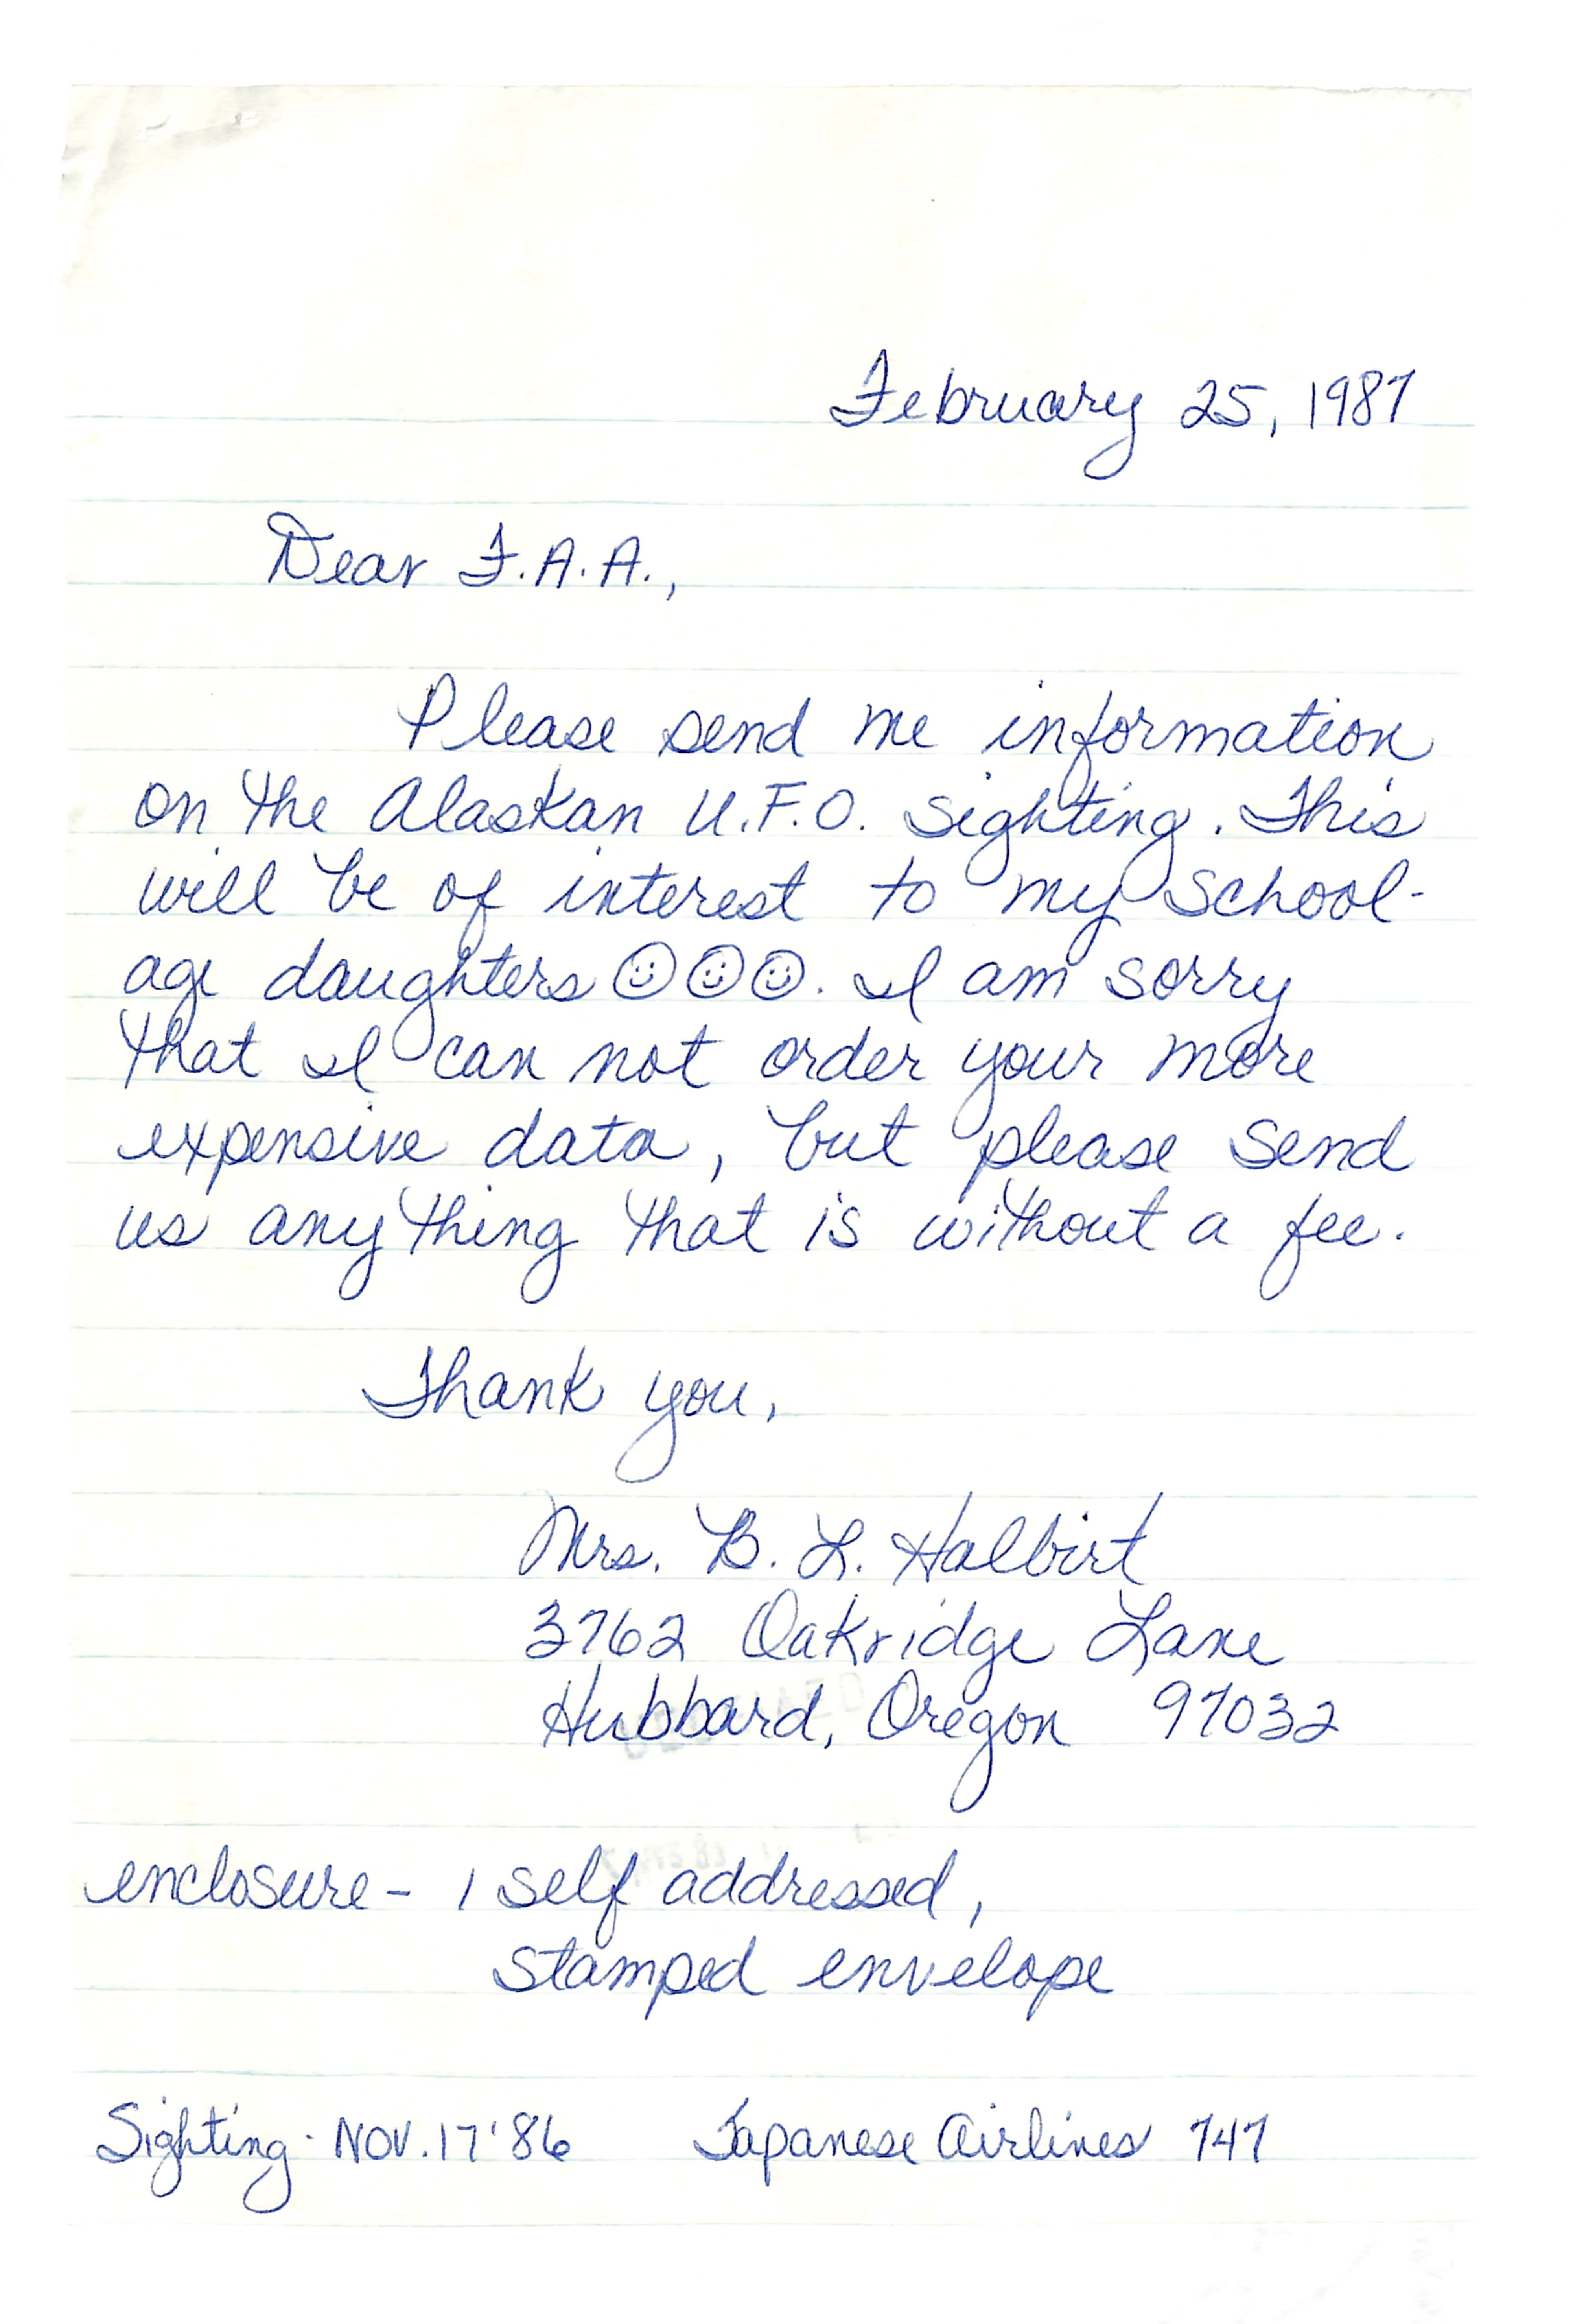 February 25, 1987
Dear F.A.A.,
Please send me information
on the Alaskan U.F.O. sighting. This
will be of interest to my school-
age daughters ☺☺☺. I am sorry
that I can not order your more
expensive data, but please send
us any thing that is without a fee.
Thank you,
Mrs. B. L. Halbirt
3762 Oakridge Lane
Hubbard, Oregon 97032
enclosure - 1 self addressed,
stamped envelope
Sighting - Nov. 17 '86 Japanese Airlines 747